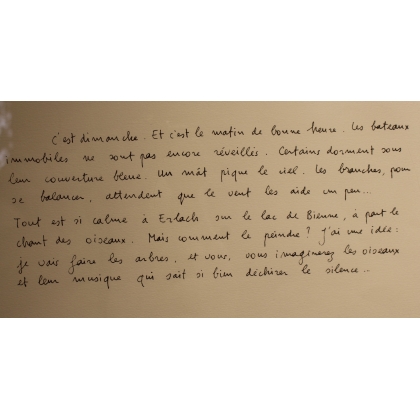 C'est dimanche. Et c'est le matin de bonne heure. Les bateaux
immobiles ne sont pas encore réveillés. Certains dorment sous
leur couverture bleue. Un mât pique le ciel. Les branches, pour
se balancer, attendent que le vent les aide un peu...
Tout est si calme à Erlach sur le lac de Bienne, à part le
chant des oiseaux. Mais comment le peindre ? J'ai une idée :
je vais faire les arbres, et vous, vous imaginerez les oiseaux
et leur musique qui sait si bien déchirer le silence..